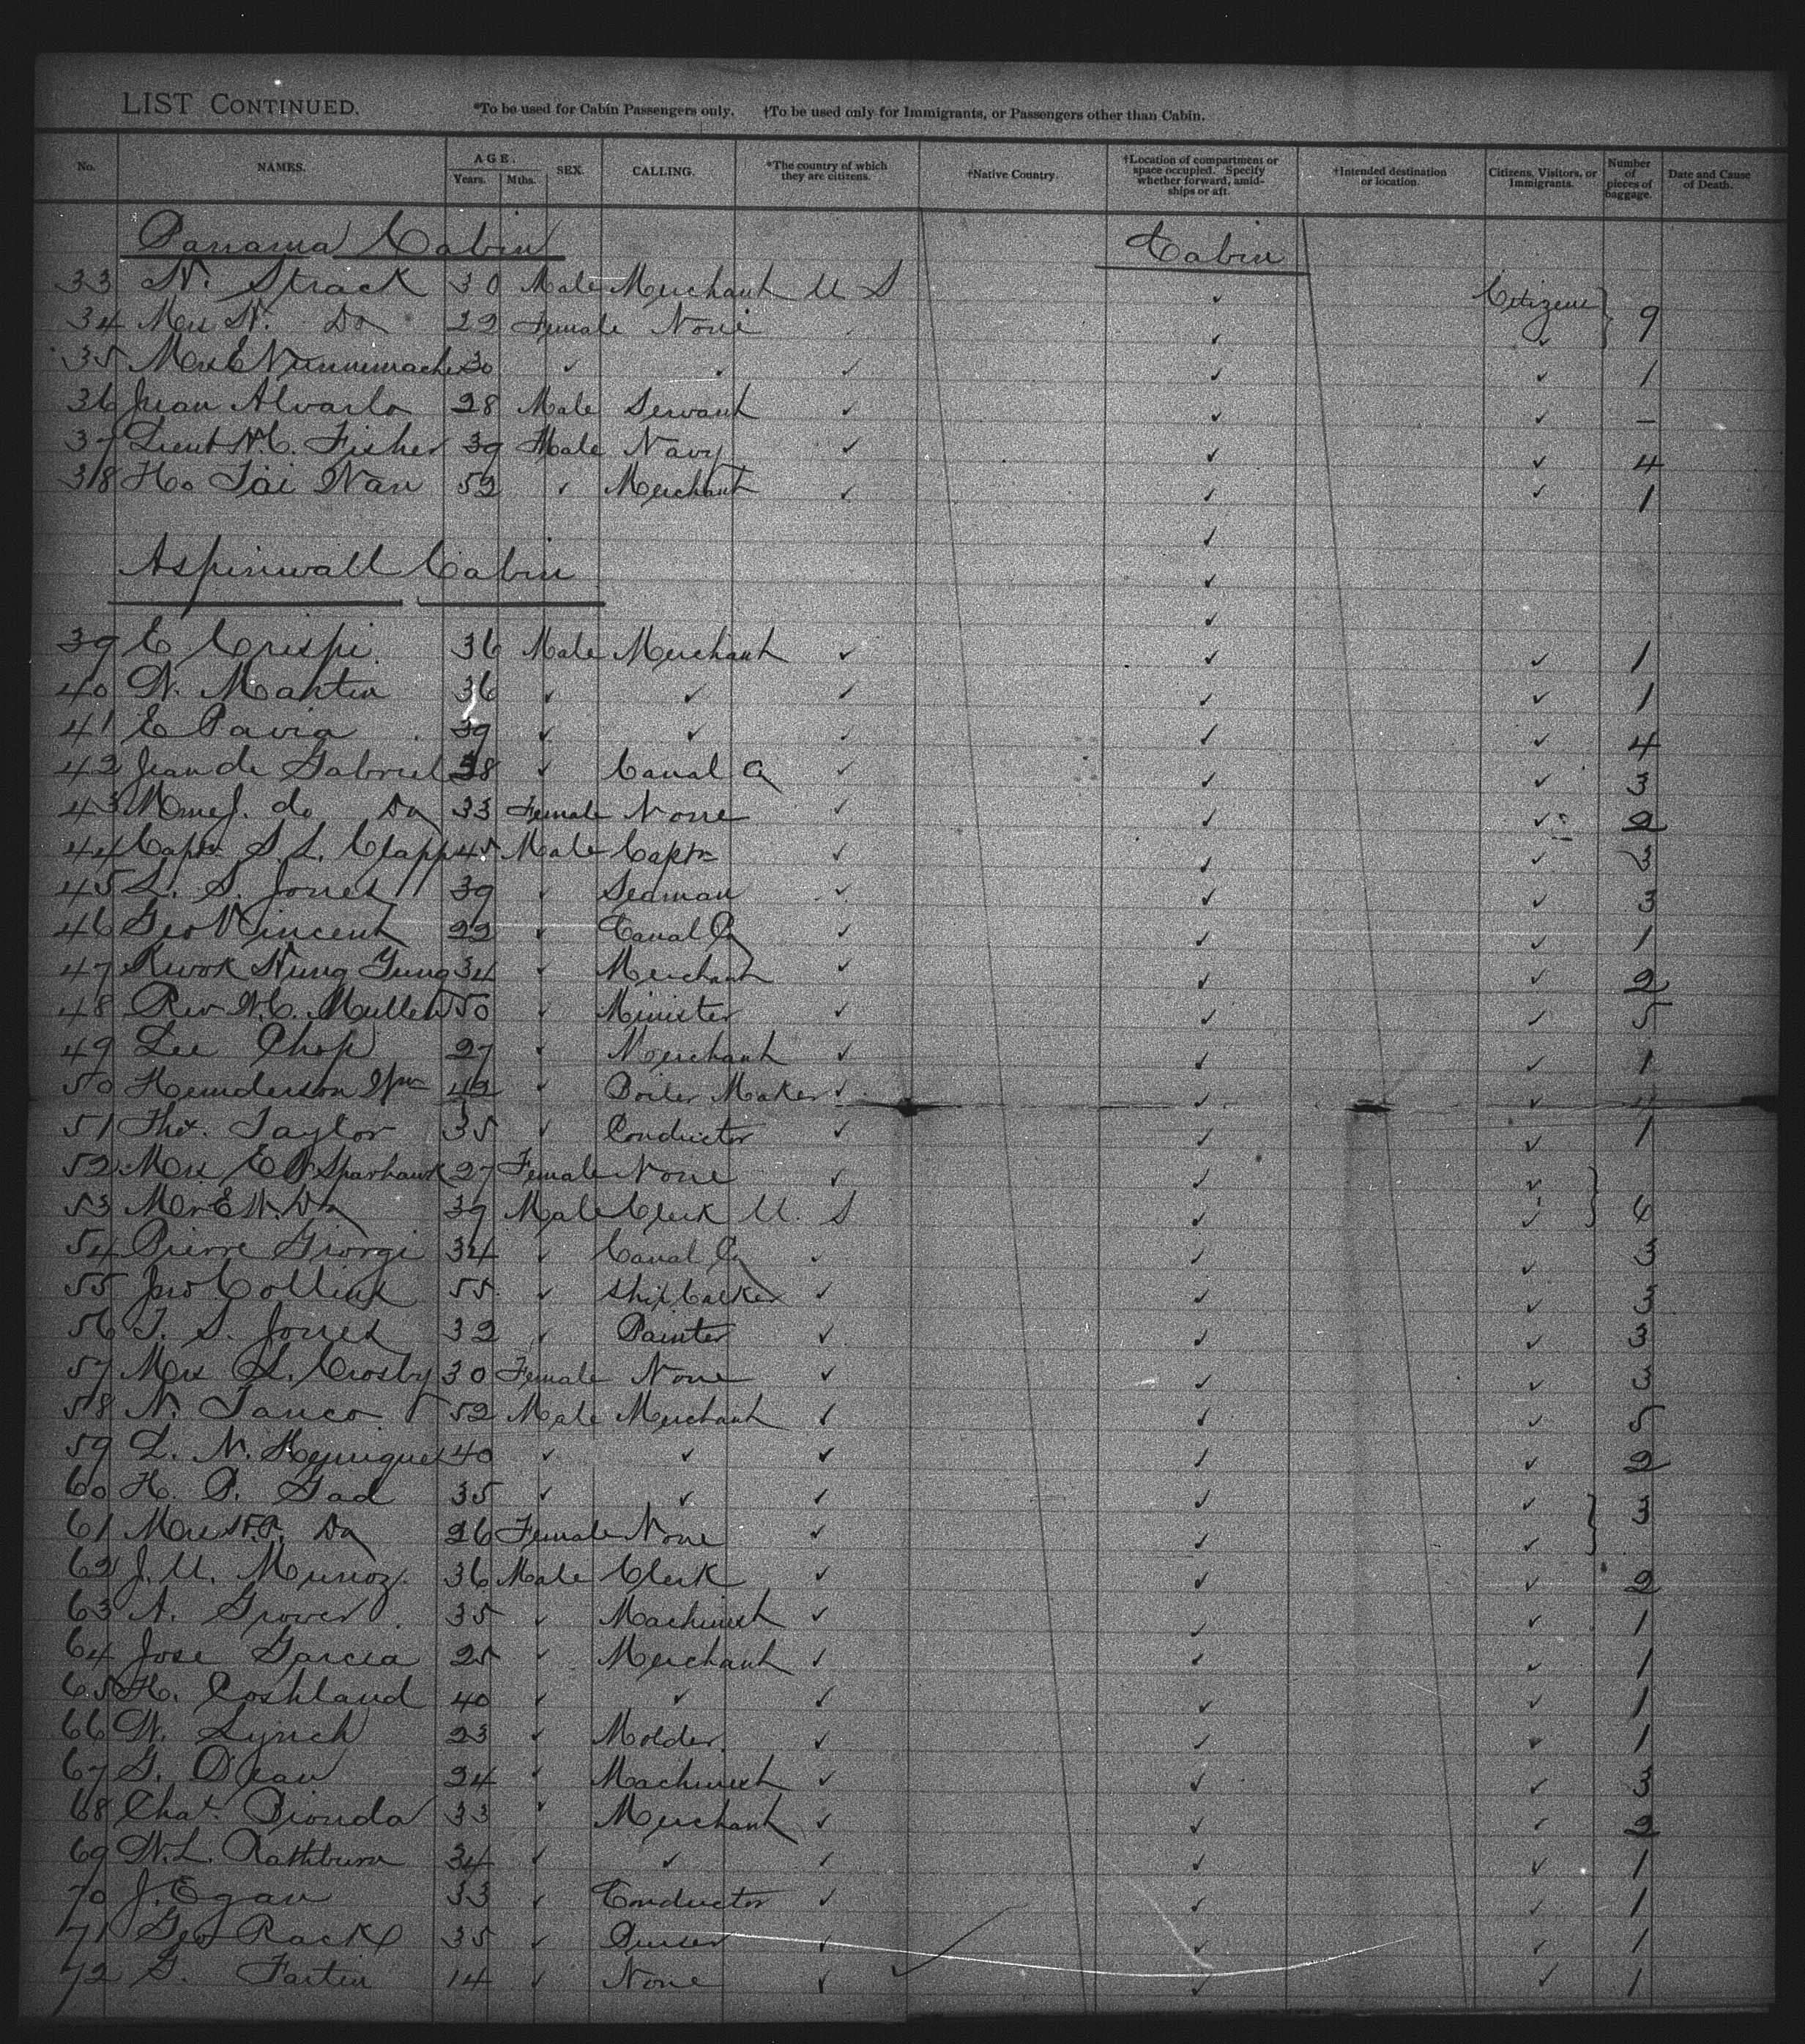 LIST CONTINUED. *To be used for Cabin Passengers only. †To be used only for Immigrants, or Passengers other than Cabin.
No. NAMES. AGE. Years. Mths. SEX. CALLING. *The country of which they are citizens. †Native Country. †Location of compartment or space occupied. Specify whether forward, amidships or aft. †Intended destination or location. Citizens, Visitors, or Immigrants. Number of pieces of baggage. Date and Cause of Death.
Panama Cabin Cabin
33 N. Strack 30 Male Merchant U S ✓ Citizens 9
34 Mrs N. Do 22 Female None ✓ ✓
35 Mrs E Nunnemacher 30 ✓ ✓ ✓ ✓ ✓ 1
36 Juan Alvarlo 28 Male Servant ✓ ✓ ✓ –
37 Lieut H.C. Fisher 39 Male Navy ✓ ✓ ✓ 4
38 Ho Tai Wan 52 ✓ Merchant ✓ ✓ ✓ 1
✓
Aspinwall Cabin ✓
✓
39 E Crispi 36 Male Merchant ✓ ✓ ✓ 1
40 W. Martin 36 ✓ ✓ ✓ ✓ ✓ 1
41 E Pavia 39 ✓ ✓ ✓ ✓ ✓ 4
42 Jean de Gabriel 38 ✓ Canal Co ✓ ✓ ✓ 3
43 Mme J. do Do 33 Female None ✓ ✓ ✓ 2
44 Captn S. L. Clapp 45 Male Captn ✓ ✓ ✓ 3
45 L. S. Jones 39 ✓ Seaman ✓ ✓ ✓ 3
46 Geo Vincent 22 ✓ Canal Co ✓ ✓ ✓ 1
47 Kwok Nung Gung 34 ✓ Merchant ✓ ✓ ✓ 2
48 Rev W.C. Mullen 50 ✓ Minister ✓ ✓ ✓ 5
49 Lee Chop 27 ✓ Merchant ✓ ✓ ✓ 1
50 Hemderson Wm 42 ✓ Boiler Maker ✓ ✓ ✓ 4
51 Thos. Taylor 35 ✓ Conductor ✓ ✓ ✓ 1
52 Mrs E W Sparhawk 27 Female None ✓ ✓ ✓
53 Mr E W. Do 39 Male Clerk U. S ✓ ✓ 6
54 Pierre Giorgi 34 ✓ Canal Co ✓ ✓ ✓ 3
55 Jno Collins 55 ✓ Ship Calker ✓ ✓ ✓ 3
56 T. S. Jones 32 ✓ Painter ✓ ✓ ✓ 3
57 Mrs L. Crosby 30 Female None ✓ ✓ ✓ 3
58 N. Tanco 52 Male Merchant ✓ ✓ ✓ 5
59 L. N. Henriques 40 ✓ ✓ ✓ ✓ ✓ 2
60 H. P. Gad 35 ✓ ✓ ✓ ✓ ✓ 3
61 Mrs H.P. Do 26 Female None ✓ ✓ ✓
62 J. U. Munoz. 36 Male Clerk ✓ ✓ ✓ 2
63 A. Grover 35 ✓ Machinist ✓ ✓ ✓ 1
64 Jose Garcia 25 ✓ Merchant ✓ ✓ ✓ 1
65 H. Coshland 40 ✓ ✓ ✓ ✓ ✓ 1
66 W. Lynch 23 ✓ Molder ✓ ✓ ✓ 1
67 G. Dean 24 ✓ Machinist ✓ ✓ ✓ 3
68 Chas. Pionda 33 ✓ Merchant ✓ ✓ ✓ 2
69 W. L. Rathburn 34 ✓ ✓ ✓ ✓ ✓ 1
70 J. Egan 33 ✓ Conductor ✓ ✓ ✓ 1
71 Geo Rack 35 ✓ Purser ✓ ✓ ✓ 1
72 G. Fartin 14 ✓ None ✓ ✓ ✓ 1